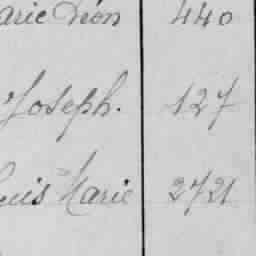 arie Léon 440
Joseph. 127
ouis Marie 2721